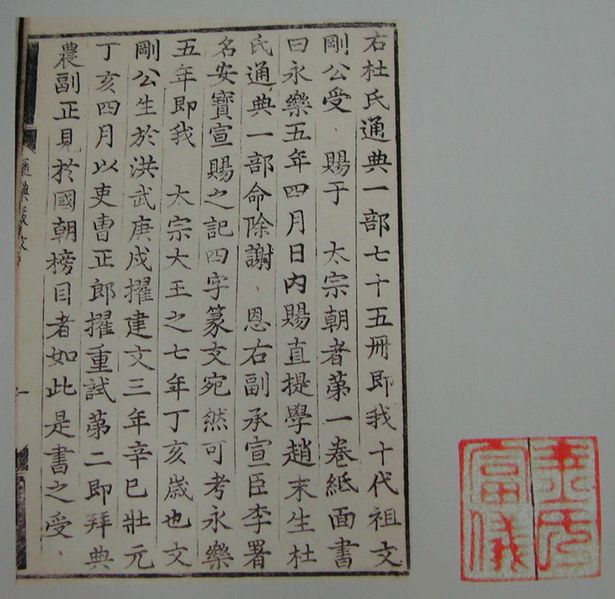 右杜氏通典一部七十五冊即我十代祖文
剛公受 賜于 太宗朝者第一卷紙面書
曰永樂五年四月日內賜直提學趙末生杜
氏通典一部命除謝 恩右副承宣臣李署
名安寶宣賜之記四字篆文宛然可考永樂
五年即我 太宗大王之七年丁亥歲也文
剛公生於洪武庚戌擢建文三年辛巳壯元
丁亥四月以吏曹正郎擢重試第二即拜典
農副正見於國朝榜目者如此是書之受